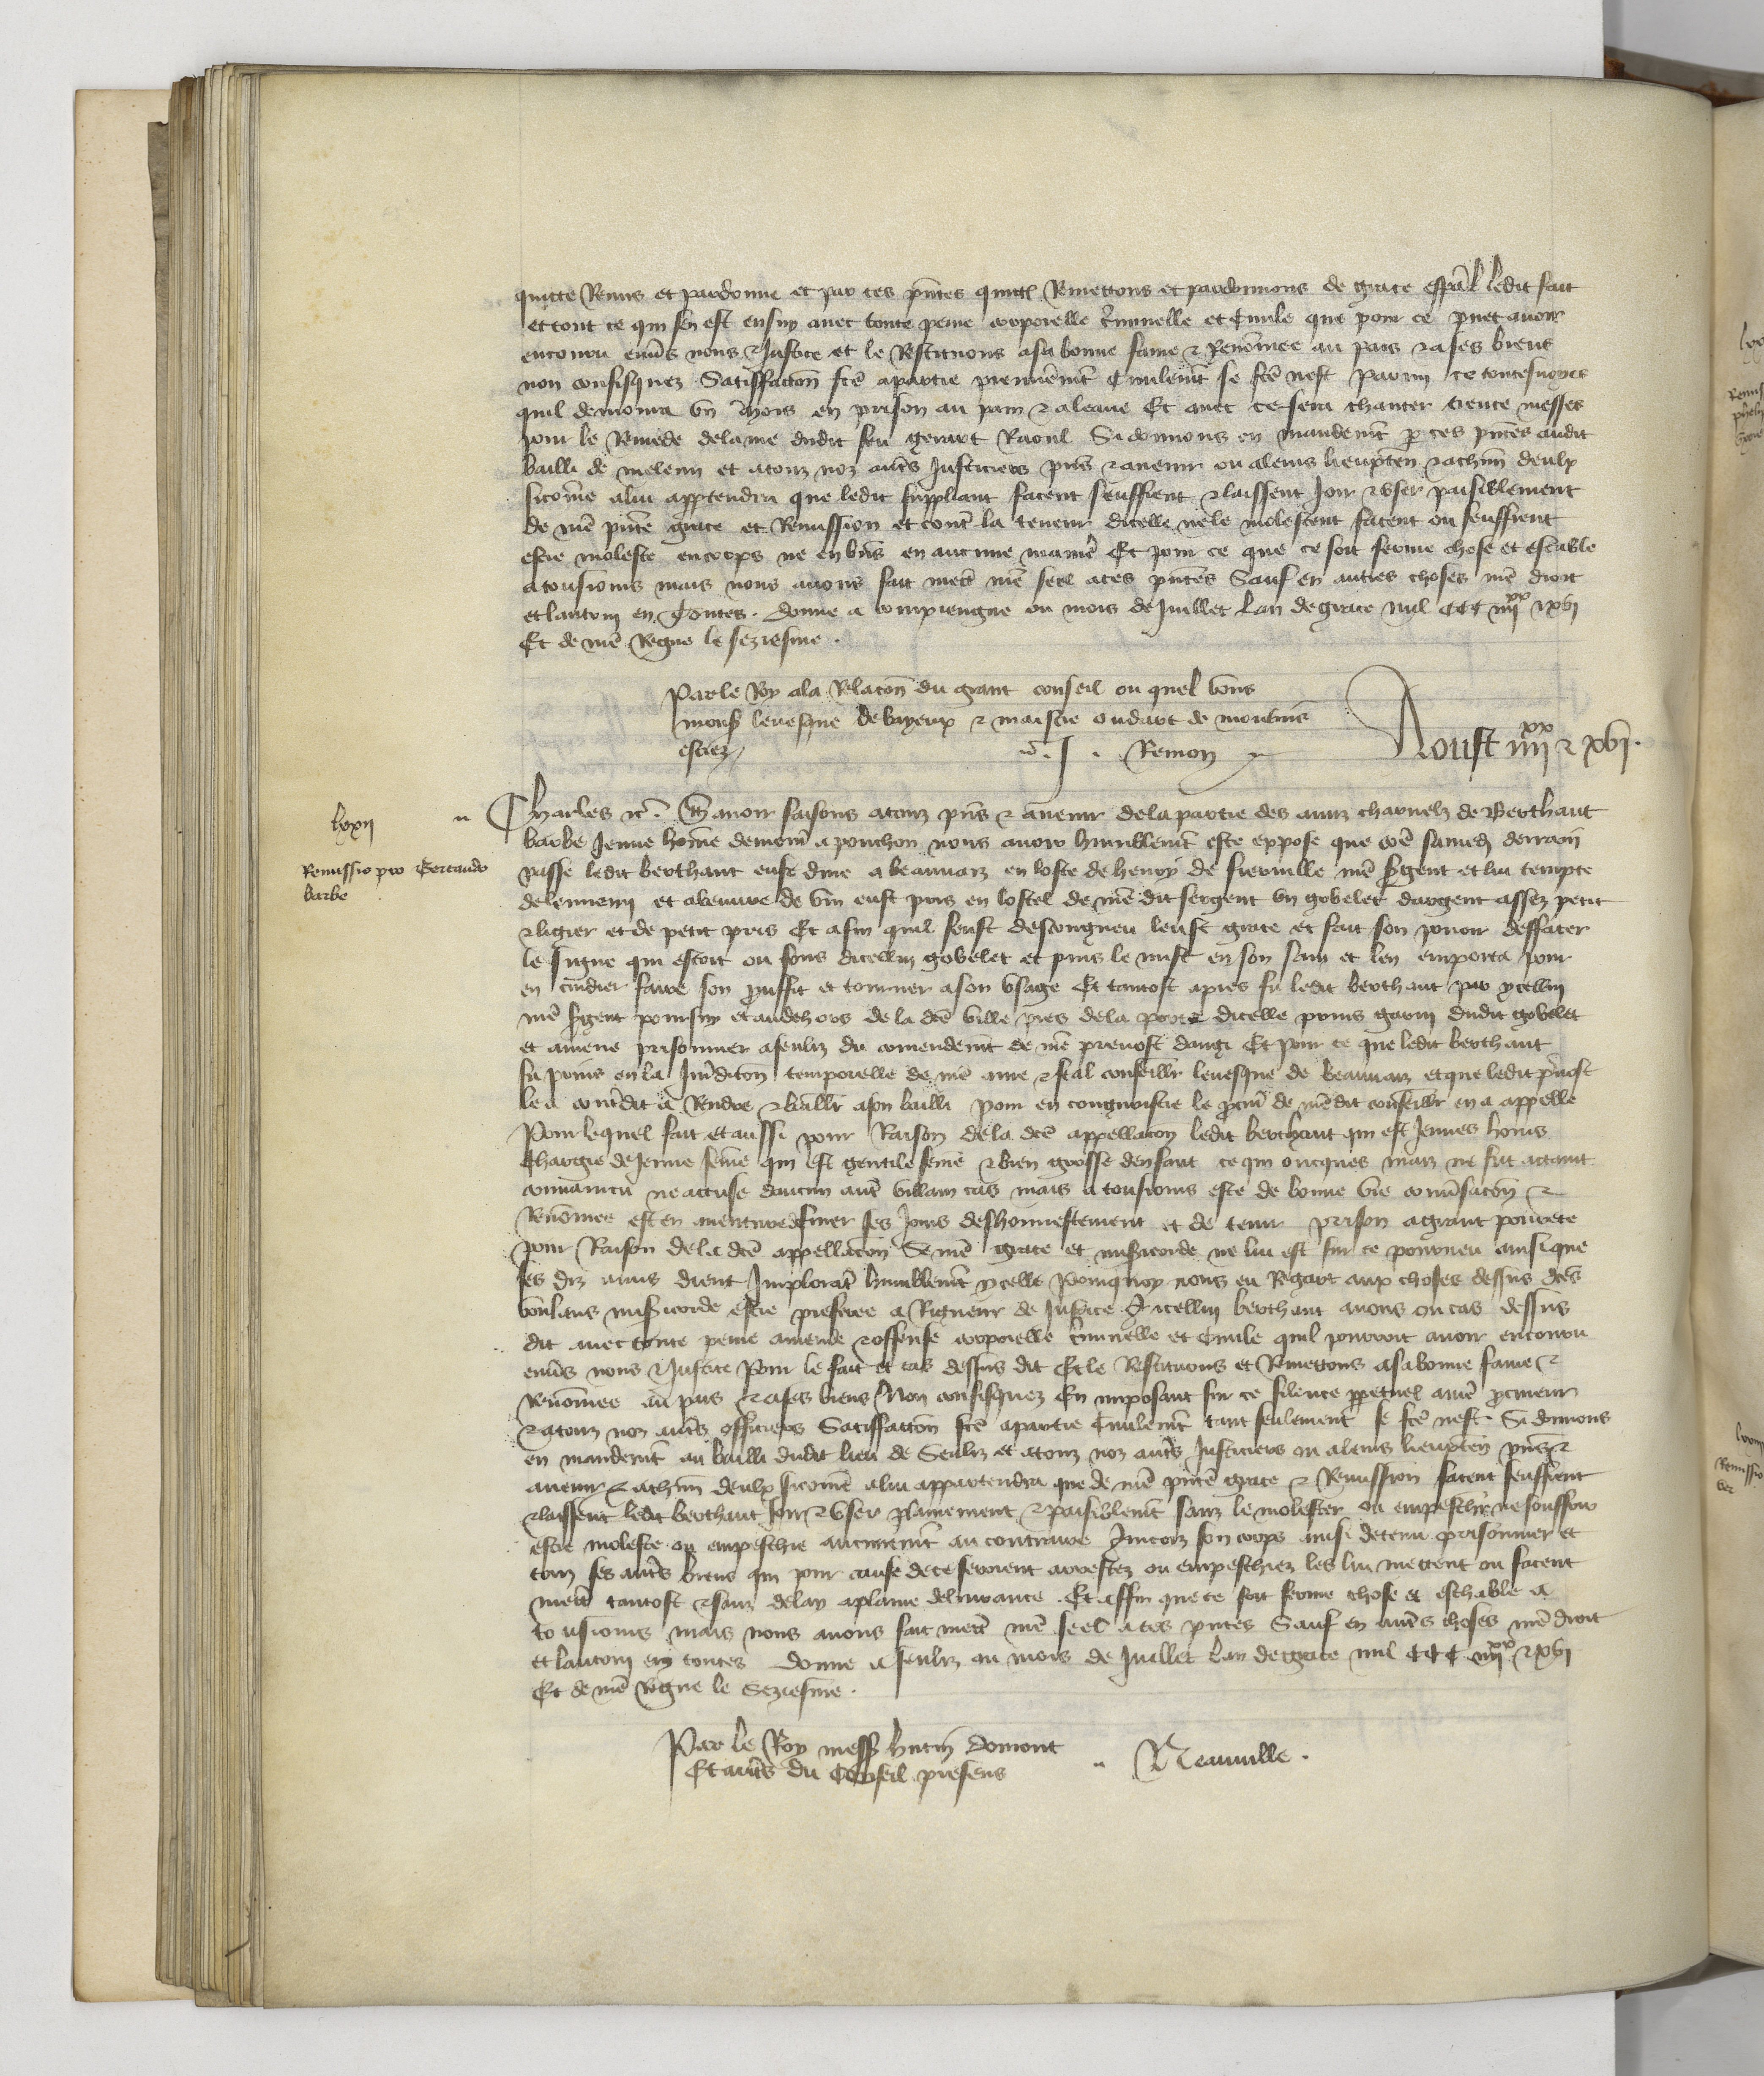 quitte Remis et pardonne et par ces pntes quittons Remettons et pardonnons de grace espal ledit fait
et tout ce qui sen est ensuy avec toute peine corporelle criminelle et Civile que pour ce puet avoir
encouru envs nous & Justice et le Restituons a sa bonne fame & Renommee au pais & a ses biens
non confisquez Satisffaction fcte a partie premieremt Civilemt se fcte nest Parmi ce toutesvoyes
quil demourra un mois en prison au pain & a leaue Et avec ce fera chanter trente messes
pour le Remede de lame dudit feu gerart Raoul Si donnons en mandemt p ces pntes audit
bailli de meleun et a touz noz autres Justiciers pns & avenir ou a leurs lieuxten & a chun deulx
sicome a lui apptendra que ledit suppliant facent seuffrent & laissent Joir & user paisiblement
de nre pnte grace et Remission et contre la teneur dicelle ne le molestent facent ou seuffrent
estre moleste en corps ne en biens en aucune maniere Et pour ce que ce soit ferme chose et estable
a tousiours mais nous avons fait mettre nre seel a ces pntes Sauf en autres choses nre droit
et lautruy en toutes. donne a compiengne ou mois de Juillet lan de grace mil CCC iiiixx & xvi
Et de nre Regne le seziesme.
Par le Roy a la Relacon du grant conseil ou quel vous
mons levesque de bayeux & maistre oudart de moulins
estiez
J. Remon
Aoust iiiixx & xvi.
lxxii
Remissio pro Bertaudo
barbe
Charles &c. Savoir faisons a touz pns & avenir de la partie des amis charnelz de Berthaut
barbe Jeune home demourant a ponchon nous avoir humblemt este expose que come samedi derrain
passe ledit berthaut eust disne a beauvaiz en loste de henry de fierville nre sergent et lui tempte
de lennemi et abeuvre de vin eust pris en lostel de nre dit sergent un gobelet dargent assez petit
& ligier et de petit pris Et afin quil feust descongneu leust grate et fait son povoir deffacer
le signe qui estoit ou fons dicellui gobelet et puis le mist en son sain et len emporta pour
en cuidier faire son prouffit et tourner a son usage Et tantost apres fu ledit berthaut par ycellui
nre sergent poursuy et au dehors de la dce ville pres de la porte dicelle prins garni dudit gobelet
et amene prisonnier a senliz du comendemt de nre prevost dangi Et pour ce que ledit berthaut
fu prins en la Juridiction temporelle de nre ame & feal conseiller levesque de beauvaiz et que ledit prevost
le a contredit a Rendre & bailler a son bailli pour en congnoistre le procur de nre dit conseiller en a appelle
Pour lequel fait et aussi pour Raison de la dce appellacon ledit berthaut qui est Jeunes homs
chargie de Jeune feme qui est gentile feme & bien grosse denfant ce qui oncques maiz ne fut attaint
convaincu ne accuse daucun autre villain cas mais a tousiours este de bonne vie conversacon &
Renommee est en aventure de finer ses Jours deshonnestement et de tenir prison a grant povrete
pour Raison de la dce appellacon Se nre grace et misericorde ne lui est sur ce pourveu ainsi que
ses diz amis dient Implorant humblemt ycelle Pourquoy nous eu Regart aux choses dessus dces
voulans misericorde estre preferee a Rigueur de Justice A icellui berthaut avons ou cas dessus
dit avec toute peine amende & offense corporelle criminelle et Civile quil pourroit avoir encouru
envs nous & Justice Pour le fait et cas dessus dit Et le Restituons et Remettons a sa bonne fame &
Renommee au pais & a ses biens Non confisquez En imposant sur ce silence perpetuel a nre procureur
& a touz noz autres officiers Satisffaction fcte a partie Civilemt tant seulement se fcte nest. Si donnons
en mandemt au bailli dudit lieu de Senliz et a touz noz autres Justiciers ou a leurs lieuxten pns &
avenir & a chun deulx sicome a lui appartendra que de nre pnte grace & Remission facent seuffrent
& laissent ledit berthaut Joir & user plainement & paisiblemt sanz le molester ou empeschier ne souffrir
estre moleste ou empeschie aucunemt au contraire Aincoiz son corps ainsi detenu prisonnier et
touz ses autres biens qui pour cause de ce seroient arrestez ou empeschiez les lui mettent ou facent
mettre tantost & sanz delay a plaine delivrance. Et affin que ce soit ferme chose et estable a
tousiours mais nous avons fait mettre nre seel a ces pntes Sauf en autres choses nre droit
et lautruy en toutes donne a senliz ou mois de Juillet lan de grace mil CCC iiiixx & xvi
Et de nre Regne le seziesme.
Par le Roy mess hutin Domont
Et autres du Conseil presens
Neauville.